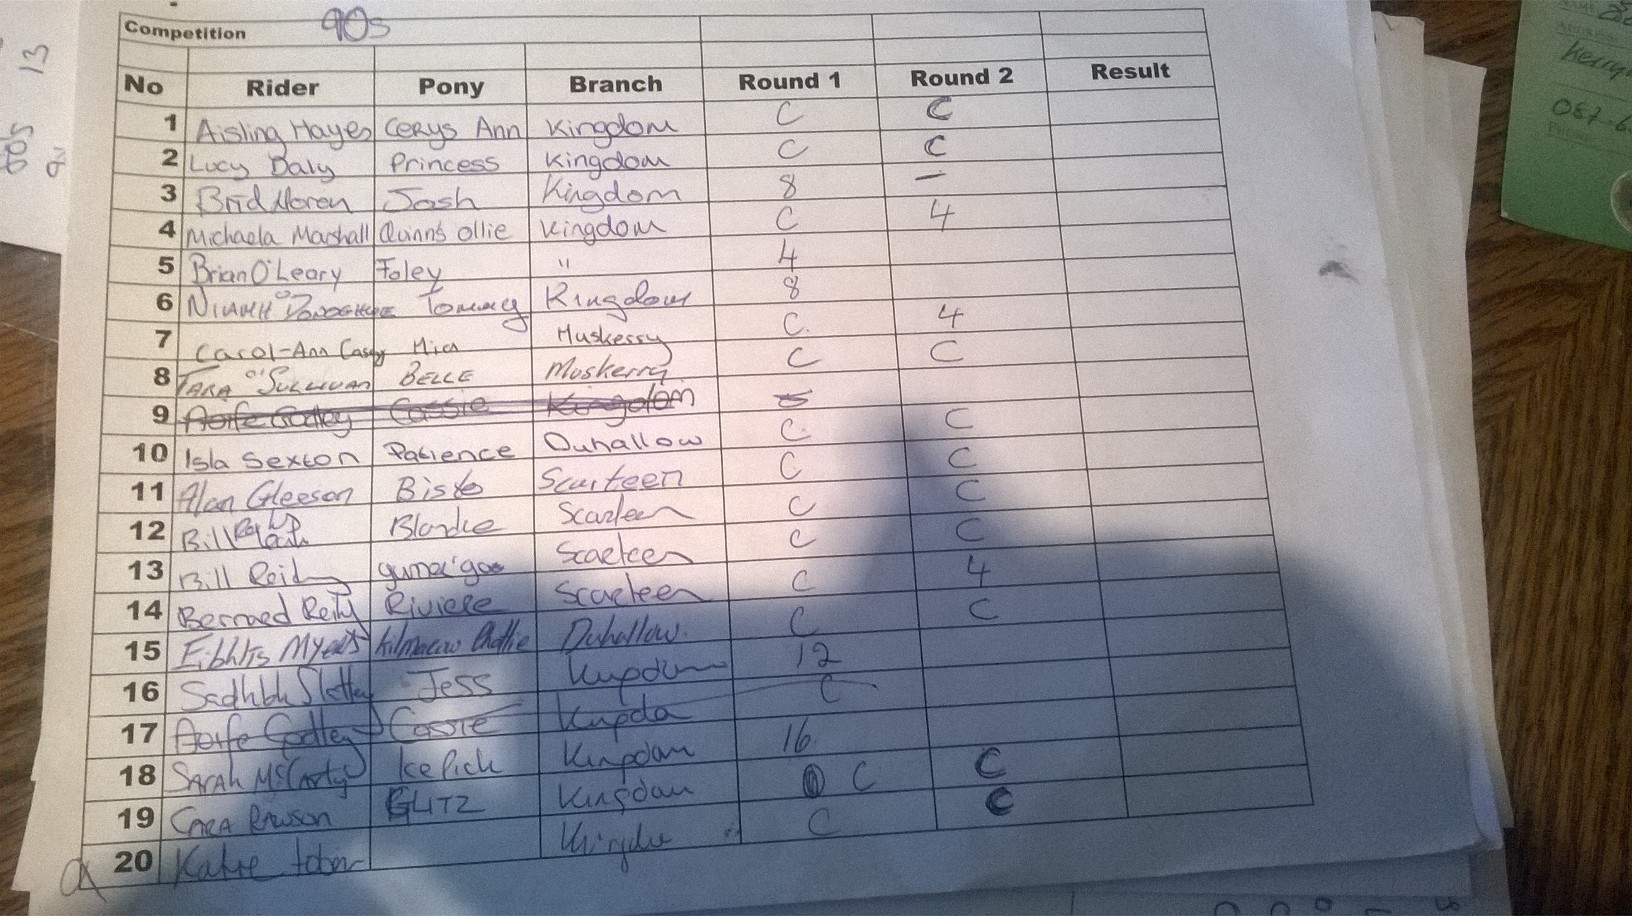 Competition 90s
No Rider Pony Branch Round 1 Round 2 Result
1 Aisling Hayes Cerys Ann Kingdom C C
2 Lucy Daly Princess Kingdom C C
3 Bríd Horan Josh Kingdom 8 –
4 Michaela Marshall Quinns Ollie Kingdom C 4
5 Brian O'Leary Foley " 4
6 Niamh O'Donoghue Tommy Kingdom 8
7 Carol-Ann Casey Mica Muskerry C 4
8 Tara O'Sullivan Belle Muskerry C C
9 Aoife Godley Cassie Kingdom
10 Isla Sexton Patience Duhallow C C
11 Alan Gleeson Bisto Scarteen C C
12 Bill Blondie Scarteen C C
13 Bill Reidy Scarteen C C
14 Bernard Reidy Riviere Scarteen C 4
15 Eibhlis Myers Duhallow C C
16 Sadhbh Slattery Jess Kingdom 12
17 Aoife Godley Cassie Kingdom C
18 Sarah McCarthy Ice Pick Kingdom 16
19 Cara Rawson Glitz Kingdom C C
20 Katie Tobin Kingdom C C